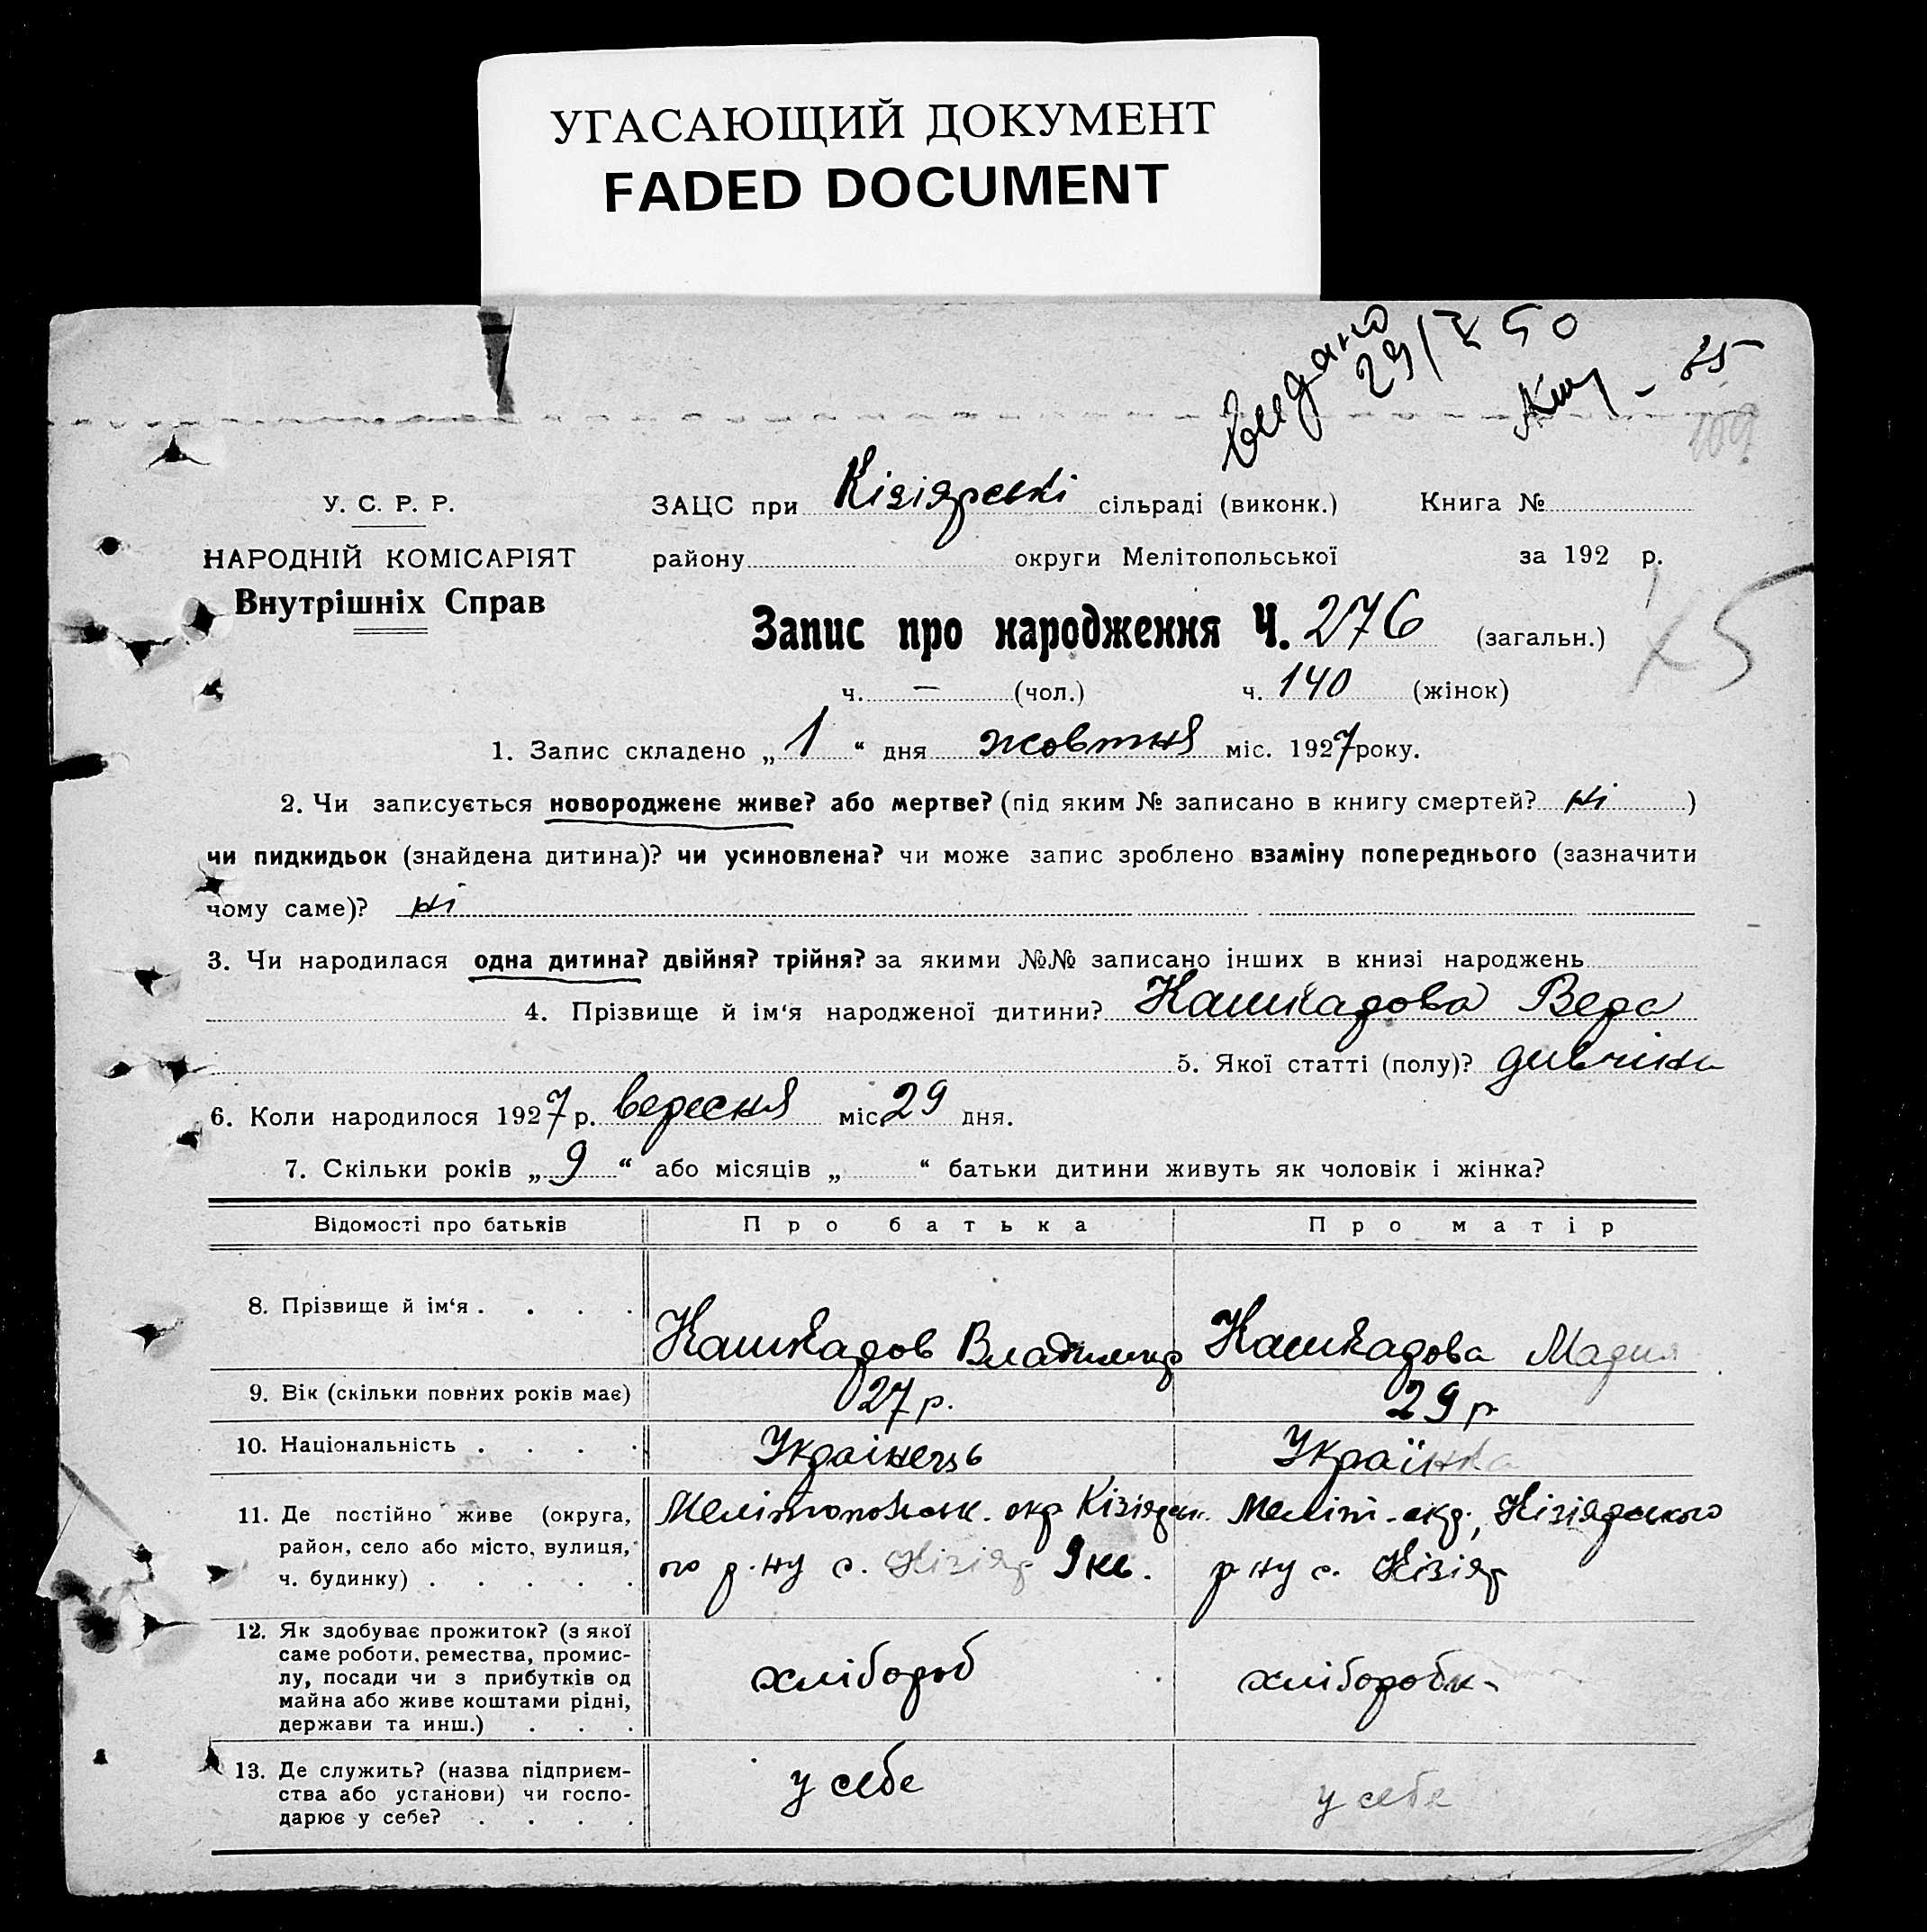 УГАСАЮЩИЙ ДОКУМЕНТ
FADED DOCUMENT
29/X 50
У. С. Р. Р.
НАРОДНІЙ КОМІСАРІЯТ
Внутрішніх Справ
ЗАЦС при Кізіярські сільраді (виконк.) Книга №
району округи Мелітопольської за 192 р.
Запис про народження Ч. 276 (загальн.)
ч. — (чол.) ч. 140 (жінок)
1. Запис складено „ 1 “ дня жовтня міс. 1927 року.
2. Чи записується новороджене живе? або мертве? (під яким № записано в книгу смертей? ні )
чи пидкидьок (знайдена дитина)? чи усиновлена? чи може запис зроблено взаміну попереднього (зазначити
чому саме)? ні
3. Чи народилася одна дитина? двійня? трійня? за якими №№ записано інших в книзі народжень
4. Прізвище й ім‘я народженої дитини? Кашкадова Вера
5. Якої статті (полу)? дивчина
6. Коли народилося 1927 р. вересня міс. 29 дня.
7. Скільки років „ 9 “ або місяців „ “ батьки дитини живуть як чоловік і жінка?
Відомості про батьків Про батька Про матір
8. Прізвище й ім‘я . . . . Кашкадов Владимир Кашкадова Мария
9. Вік (скільки повних років має) 27 р. 29 р.
10. Національність . . . . Українець Українка
11. Де постійно живе (округа, район, село або місто, вулиця, ч. будинку) . . . . .
Мелітопольськ. окр Кізіярськ.
ого р-ну с. Кізіяр 9 кв.
Меліт-окр., Кізіярського
р-ну с. Кізіяр
12. Як здобуває прожиток? (з якої
саме роботи, ремества, промис-
лу, посади чи з прибутків од
майна або живе коштами рідні,
держави та инш.) . . .
хлібороб хлібороbк-
13. Де служить? (назва підприєм-
ства або установи) чи госпо-
дарює у себе? . . . .
у себе у себе